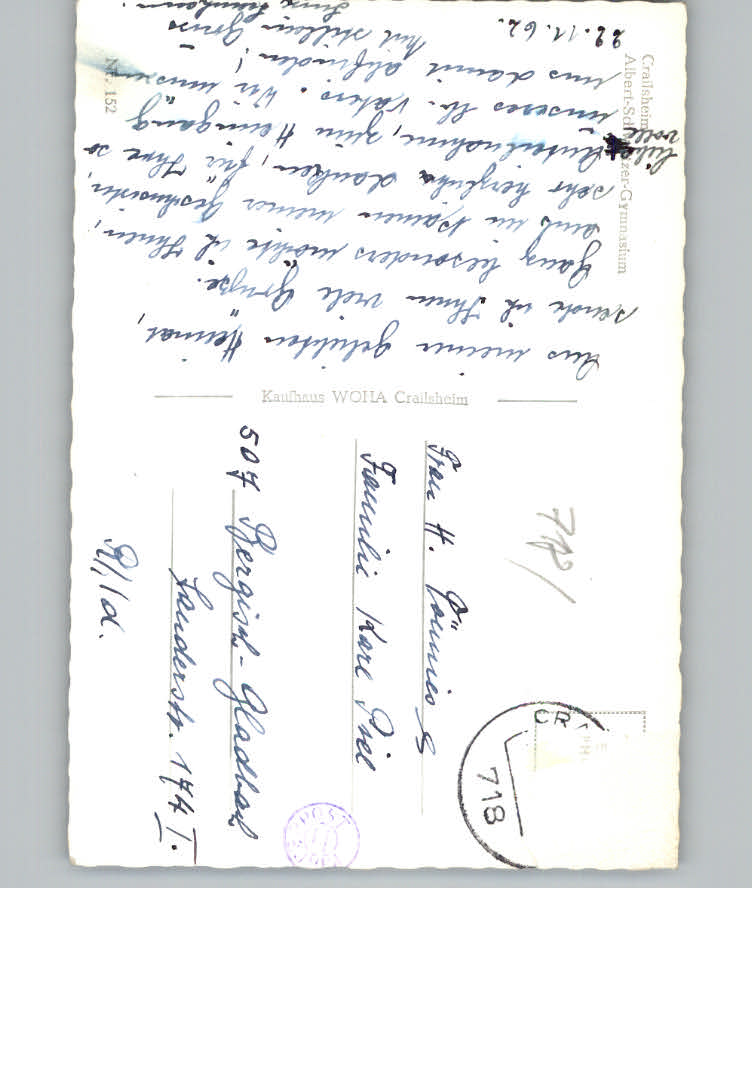 Crailsheim
Albert-Schweitzer-Gymnasium
22.11.62.
Aus meiner geliebten Heimat,
sende ich Ihnen viele Grüße.
Ganz besonders möchte ich Ihnen,
auch im Namen meiner Geschwister,
sehr herzlich danken, für Ihre so
liebe
volle
Anteilnahme, zum Heimgang
unseres lb. Vaters. Wir müssen
uns damit abfinden!
Mit stillem Gruss
Nr. 152
Kaufhaus WOHA Crailsheim
Frau H. Pönnies
Familie Karl Piel
507 Bergisch-Gladbach
Landerstr. 174 I.
Rhld.
718/
CR
718
POST